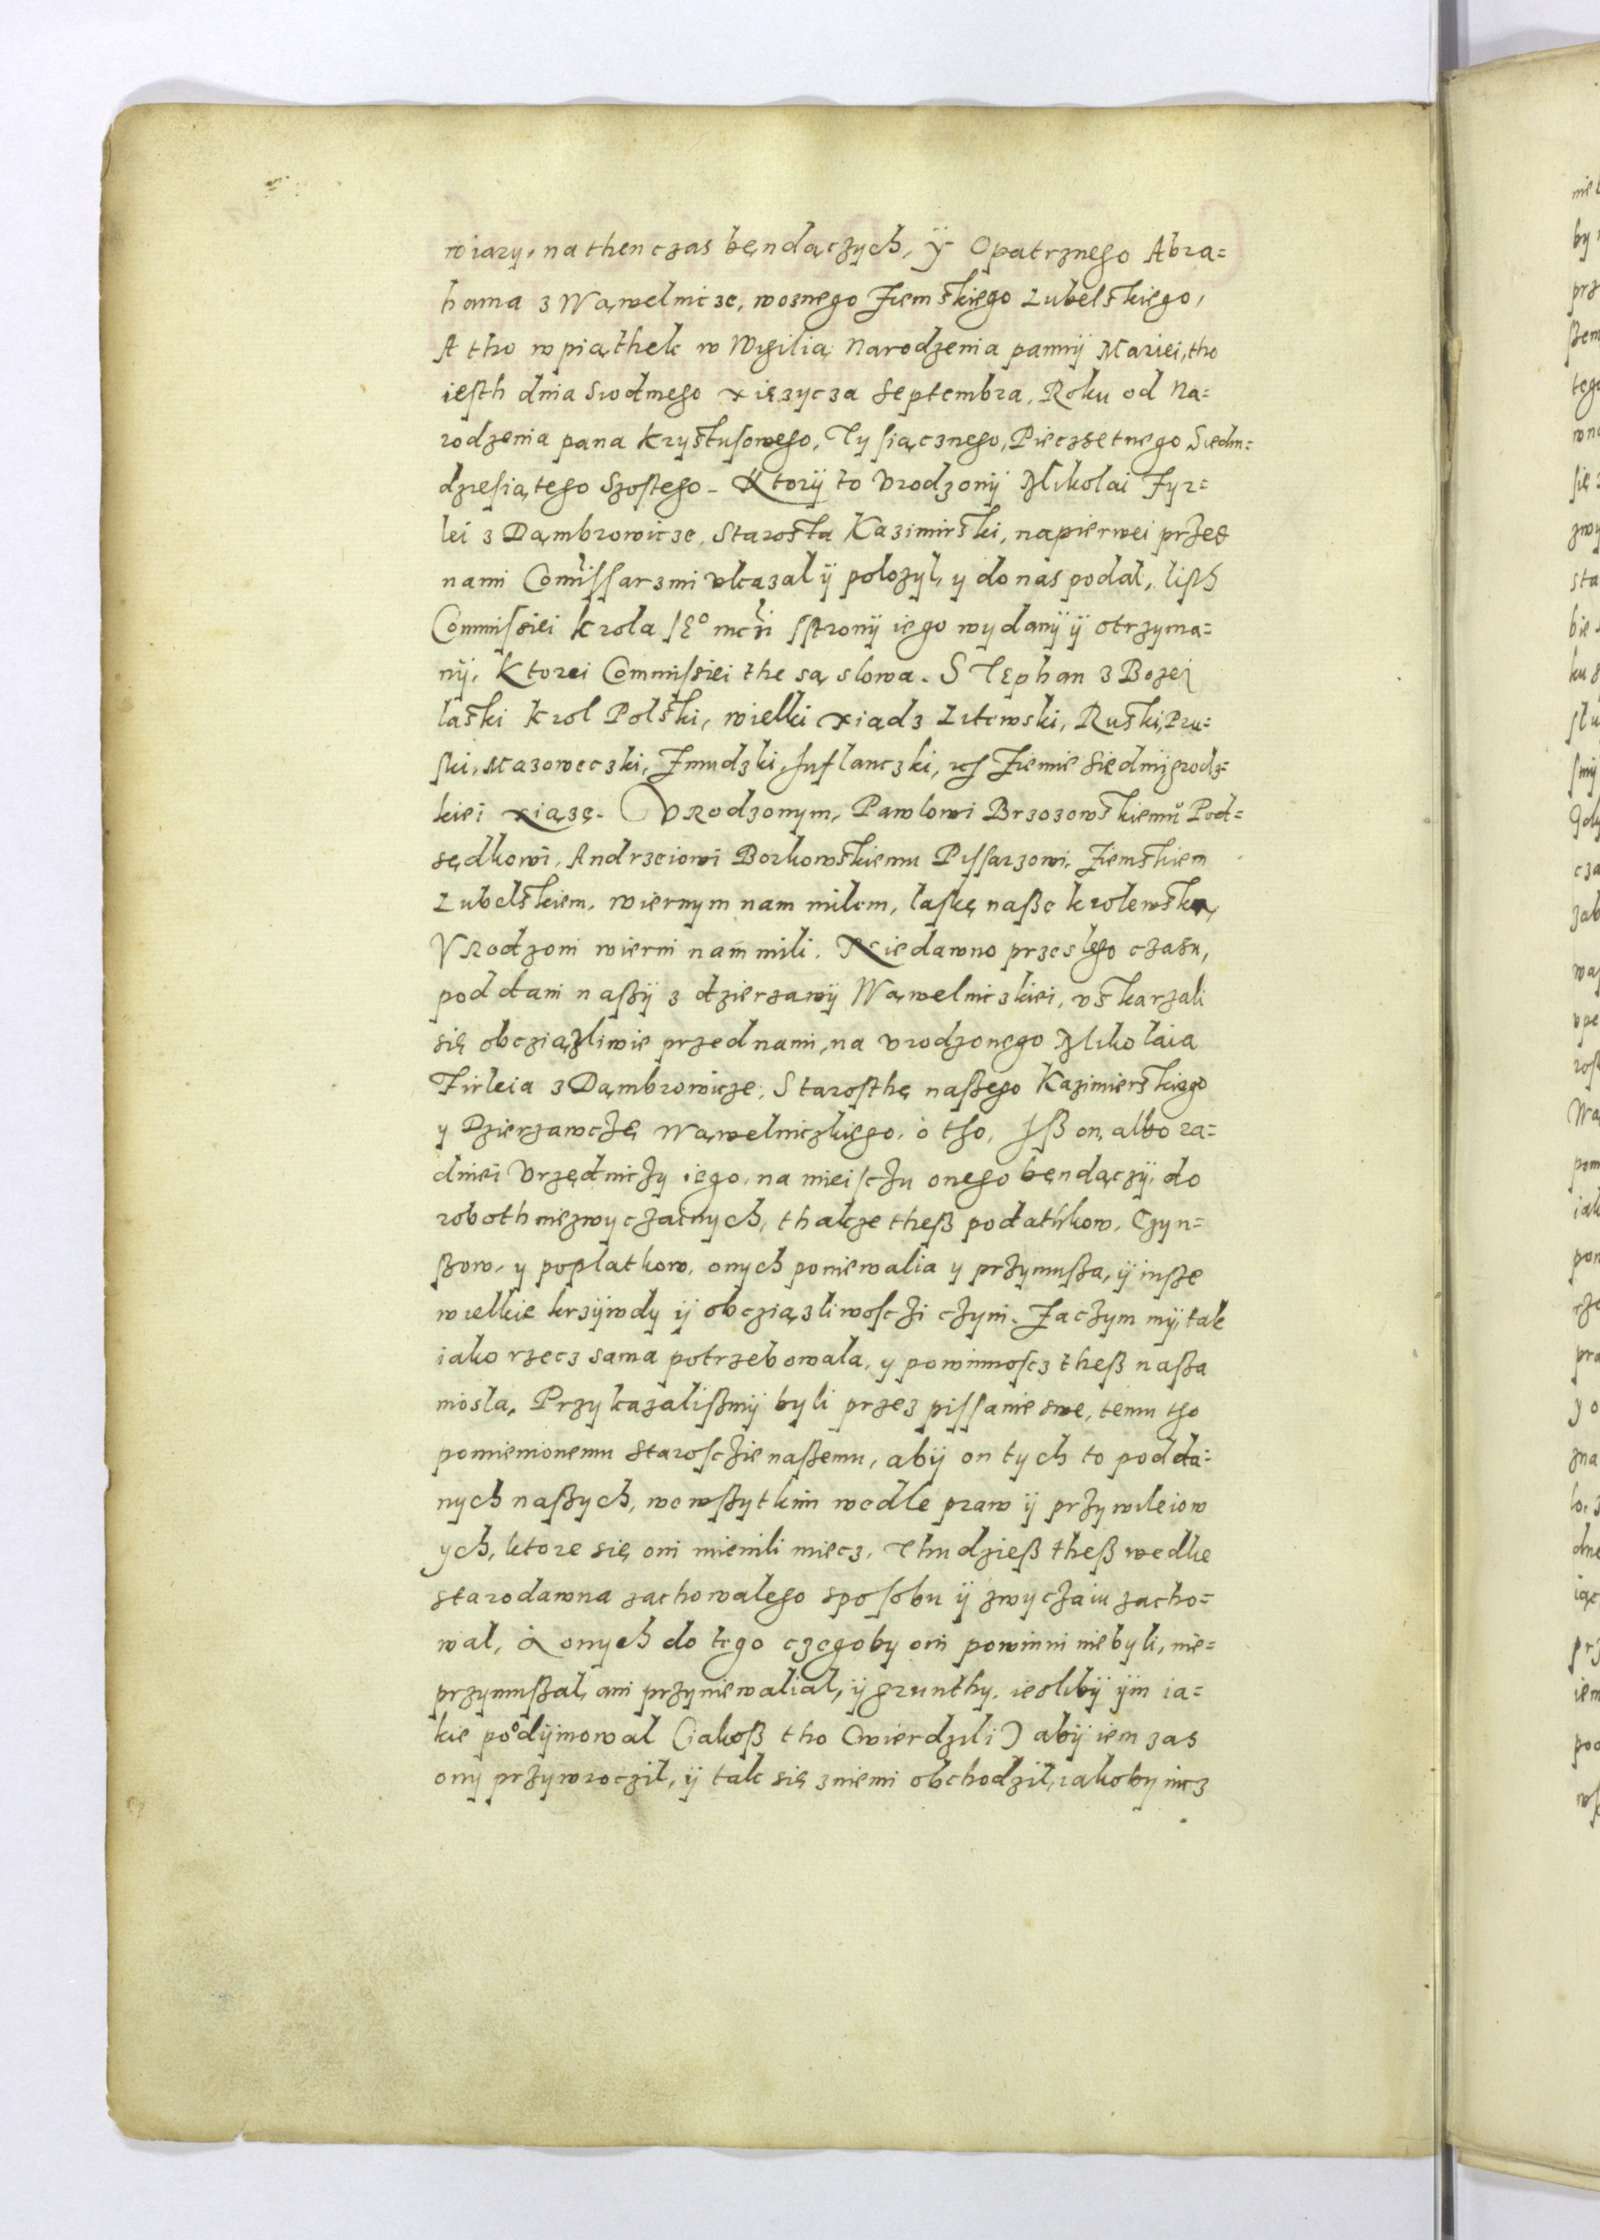 wiary, na then czas bęndączych, ÿ Opatrznego Abra=
hama z Wąwelnicze, woznego Ziemskięgo Lubelskięgo,
A tho w piąthek w Wigilią Narodzenia pannÿ Mariei, tho
iesth dnia Siodmego xięzycza Septembra, Roku od Na=
rodzenia pana krystusowego, Tysiącznego, Pieczsetnego Siedm=
dziesiątego Szostego. Ktorÿ to Vrodzonÿ Mikolai Fyr=
lei z Dąmbrowicze, Starosta Kazimirski, napierwei przed
nami Comissarzmi vkazal ÿ polozyl, y do nas podal, listh
Commissiei krola JE° mczi sstronÿ iego wydanÿ ÿ otrzyma=
nÿ, Ktorei Commissiei the są slowa. STEphan z Bozei
laski krol Polski, wielki xiądz Litewski, Ruski, Pru=
ski, Mazoweczki, Zmudzki, Juflanczki, ÿ Ziemie Siedmÿgrodz=
kiei xiązę. VRodzonym, Pawlowi Brzozowskiemů Pod=
sędkowi, Andrzeiowi Borkowskiemu Pissarzowi, Ziemskiem
Lubelskiem, wiernym nam milem, laskę nasze krolewską,
VRodzoni wierni nam mili. Niedawno przeslego czasu,
poddani naszÿ z dzierzawÿ Wąwelniczkiei, vskarzali
się obcziązliwie przed nami, na vrodzonego Mikolaia
Firleia z Dąmbrowicze, Starosthę naszego Kazimierskiego
y Dzierzawczę Wąwelniczkięgo, o tho, Jsz on, albo ra=
dniei Vrzędniczy iego, na mieisczu onego bęndączÿ, do
roboth niezwyczainych, thakze thesz podatkow, Czyn=
szow, y poplatkow, onych poniewalia y przymusza, ÿ insze
wielkie krzÿwdy ÿ obcziązliwosczi czyni. Zaczym mÿ, tak
iako rzecz sama potrzebowala, y powinnoscz thesz nasza
niosla, Przykazaliszmÿ byli przez pissanie swe, temu tho
pomienionemu Starosczie naszemu, abÿ on tych to podda=
nych naszych, we wszytkim wedle praw ÿ przywileiow
ych, ktore się oni mienili miecz, Thudziesz thesz wedle
starodawna zachowalego sposobu ÿ zwyczaiu zacho=
wal, à onych do tego czegoby oni powinni niebyli, nie=
przymuszal, ani przyniewalial, ÿ grunthy, ieslibÿ ÿm ia=
kie podÿmowal (iakosz tho twierdzili) abÿ iem zas
ony przywroczil, ÿ tak się z niemi obchodzil, iakoby nicz